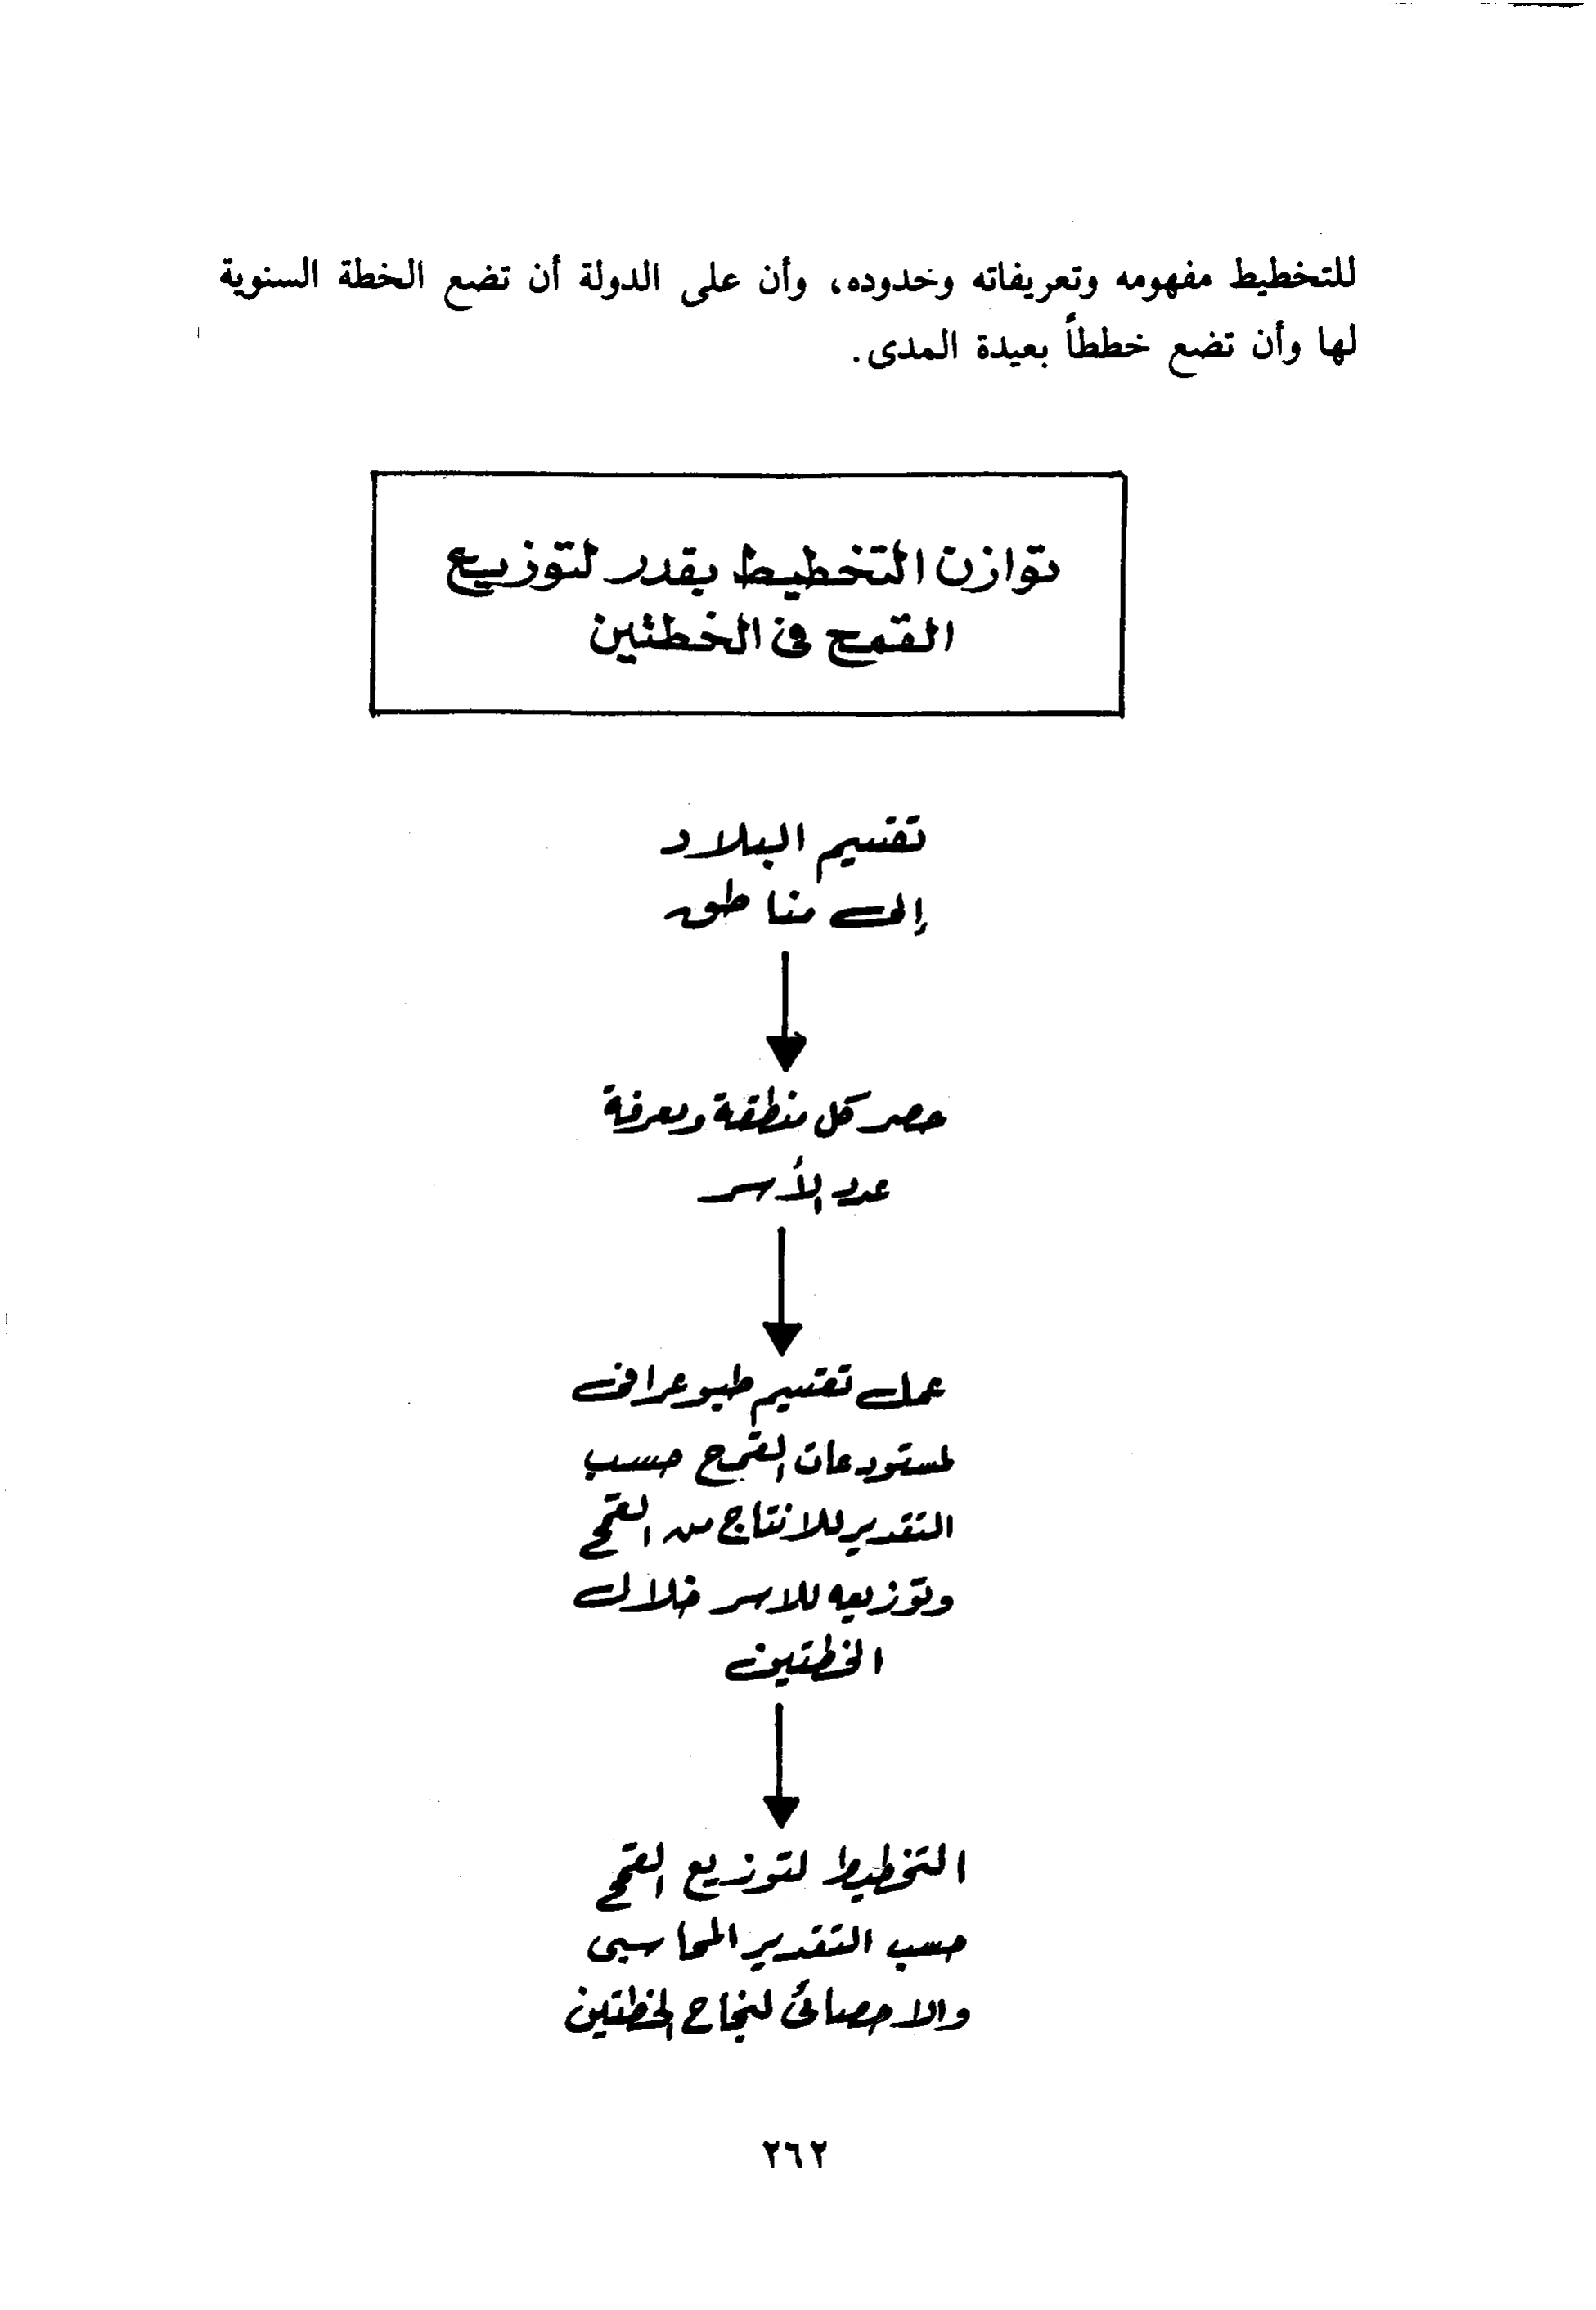 للتخطيط مفهومه وتعريفاته وحدوده، وأن على الدولة أن تضع الخطة السنوية
لها وأن تضع خططاً بعيدة المدى.
توازن التخطيط بقدر لتوزيع
القمح فى الخطتين
تقسيم البلاد
إلى مناطق
حصر كل منطقة ومعرفة
عدد الأسر
عمل تقسيم طبوغرافى
لمستودعات القمح حسب
التقدير للانتاج من القمح
وتوزيعه للاسر خلال
الخطتين
التخطيط لتوزيع القمح
حسب التقدير المحاسبى
والاحصائى لنجاح الخطتين
٢٦٢